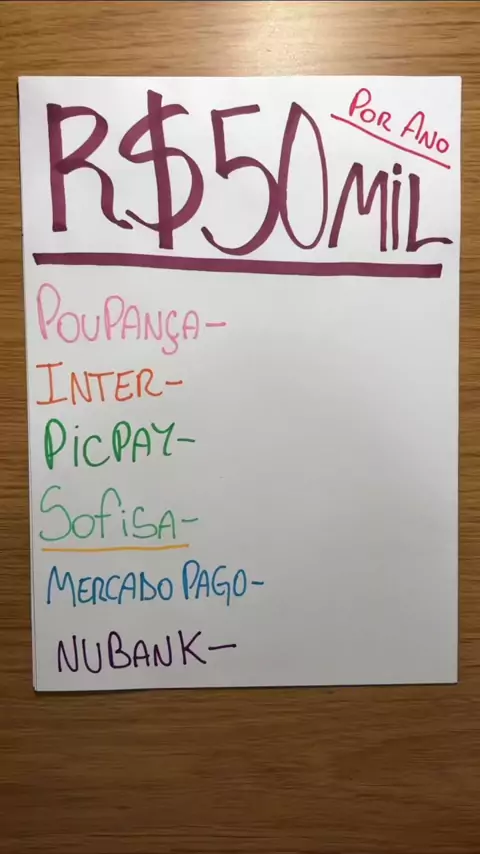 R$50 MiL
POR ANO
POUPANÇA-
INTER-
PicPAY-
SofiSA-
MERCADO PAGO-
NUBANK-